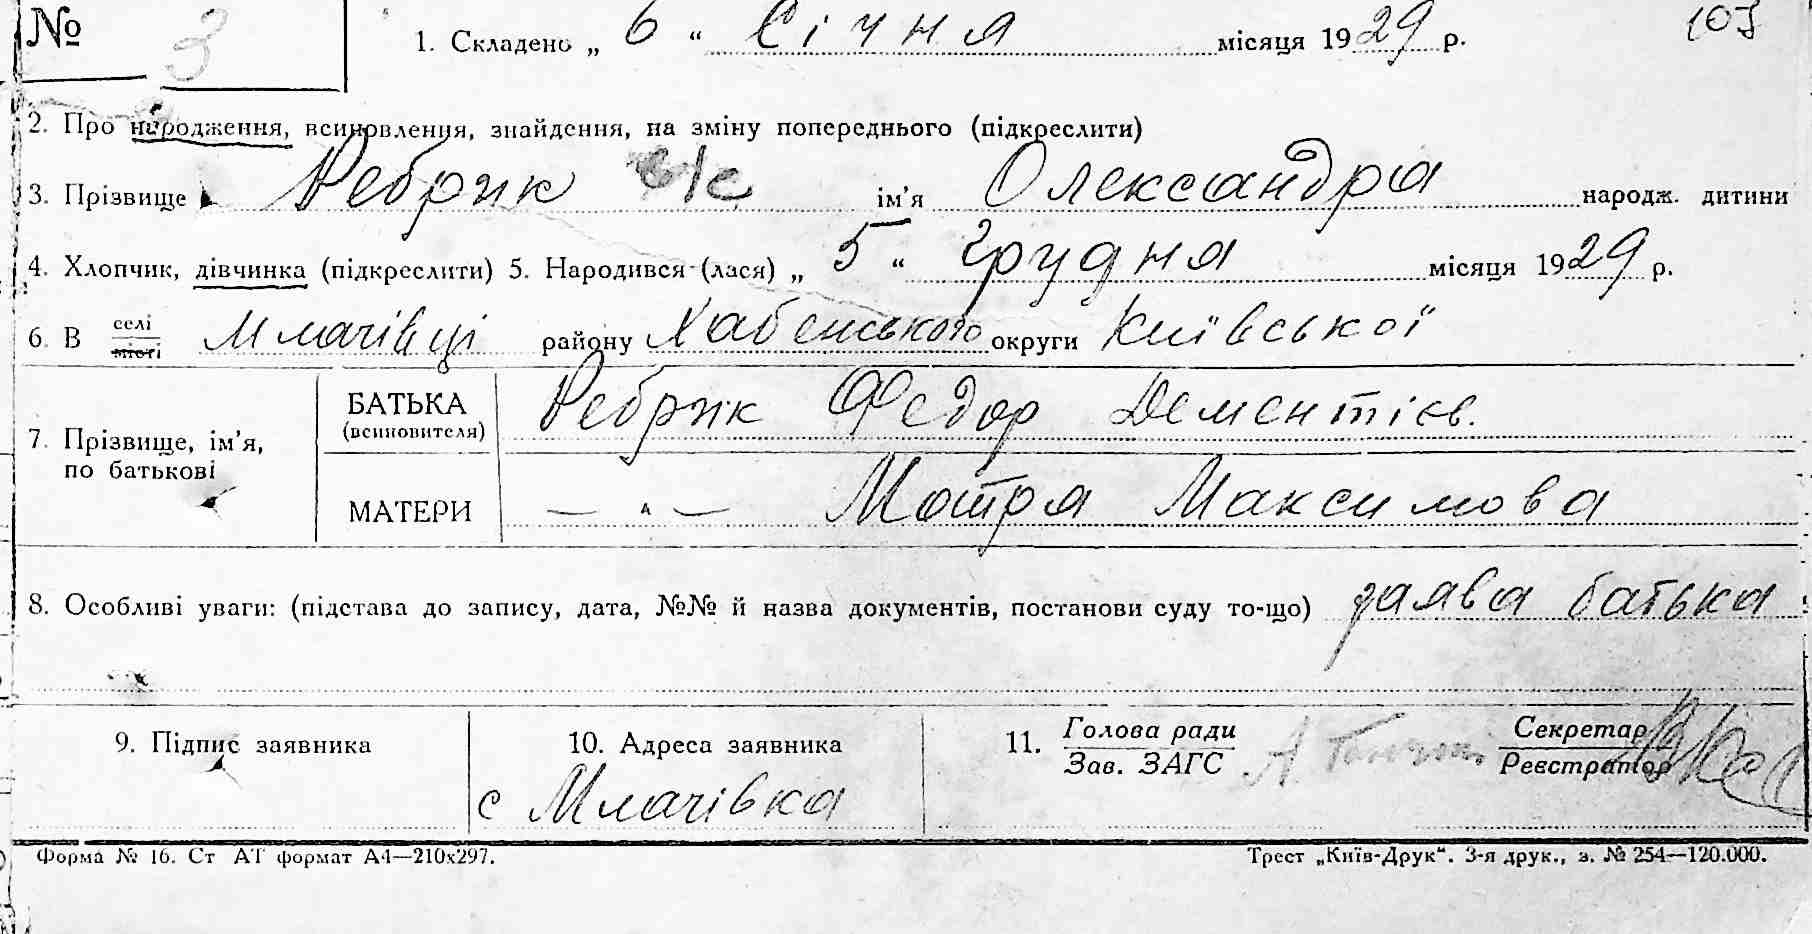 № 3 1. Складено „ 6 “ Січня місяця 1929 р. 103
2. Про народження, всиновлення, знайдення, на зміну попереднього (підкреслити)
3. Прізвище Ребрик ім’я Олександра народж. дитини
4. Хлопчик, дівчинка (підкреслити) 5. Народився (лася) „ 5 “ Грудня місяця 1929 р.
6. В селі місті Млачівці району Хабенського округи Київської
7. Прізвище, ім’я, по батькові
БАТЬКА (всиновителя) Ребрик Федор Дементієв.
МАТЕРИ — „ — Мотря Максимова
8. Особливі уваги: (підстава до запису, дата, №№ й назва документів, постанови суду то-що) заява батька
9. Підпис заявника 10. Адреса заявника 11. Голова ради Зав. ЗАГС Секретар Реєстратор
с Млачівка
Форма № 16. Ст АТ формат А4—210х297. Трест „Київ-Друк“. 3-я друк., з. № 254—120.000.